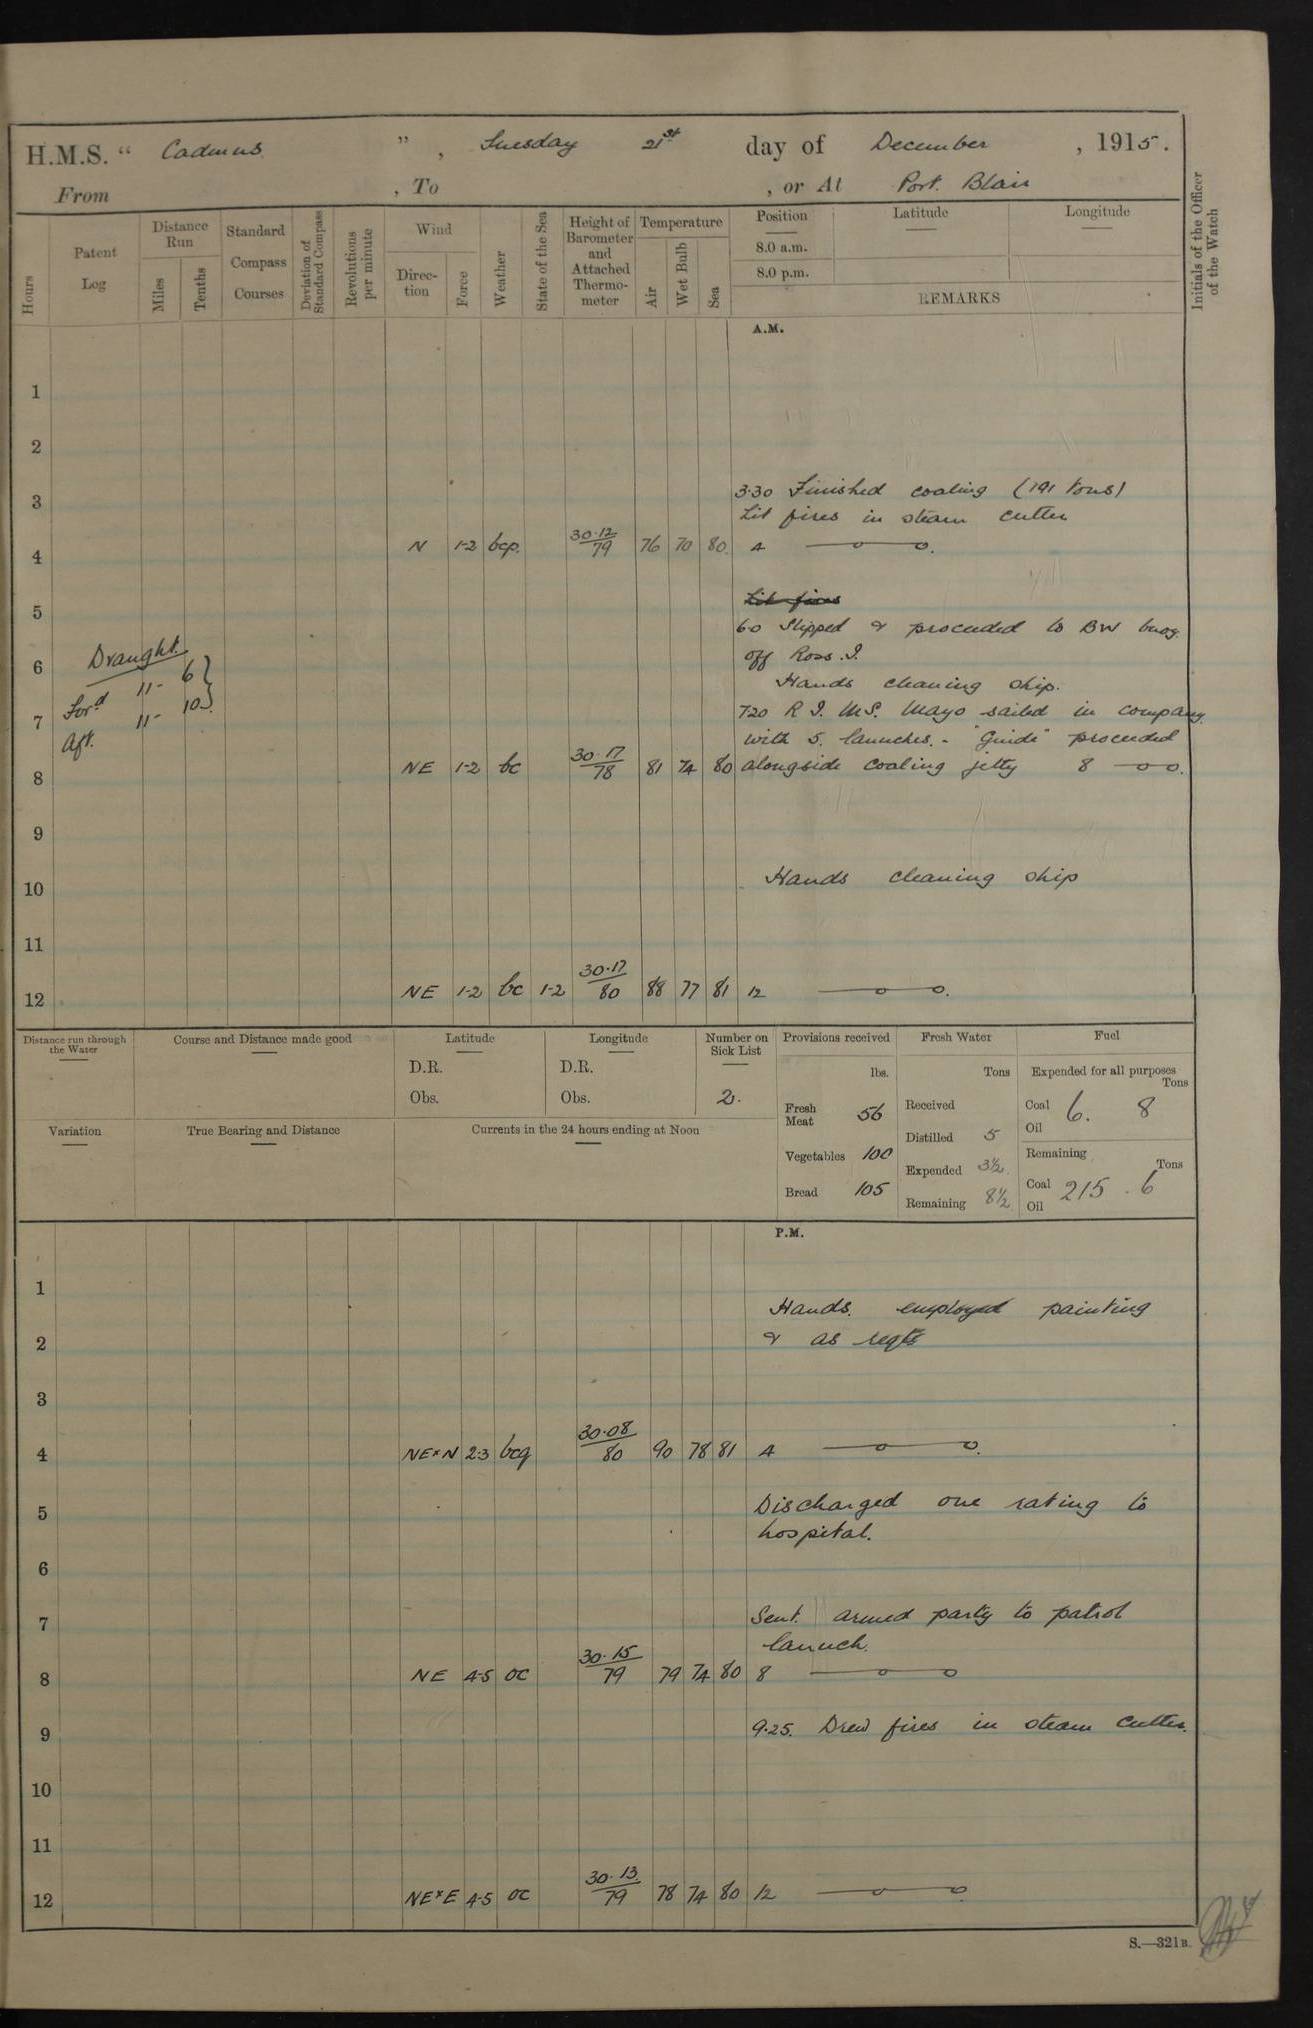 H.M.S. “ Cadmus ” , Tuesday 21st day of December , 1915.
From , To , or At Port Blair
Hours
Patent Log
Distance Run
Miles
Tenths
Standard Compass Courses
Deviation of Standard Compass
Revolutions per minute
Wind
Direc- tion
Force
Weather
State of the Sea
Height of Barometer and Attached Thermo- meter
Temperature
Air
Wet Bulb
Sea
Position
8.0 a.m.
8.0 p.m.
Latitude
Longitude
REMARKS
Initials of the Officer of the Watch
A.M.
1
2
3:30 Finished coaling (191 tons)
3
Lit fires in steam cutter
4 N 1-2 bcp. 30.12/79 76 70 80 4
Lit fires
5
6.0 Slipped & proceeded to BW buoy.
off Ross. I.
Draught.
6
Hands cleaning ship.
Ford 11 - 6
7.20 R.I.M.S. Mayo sailed in company
7
Aft. 11 - 10
with 5. launches. - "Guide" proceeded
8 NE 1-2 bc 30.17/78 81 74 80 alongside coaling jetty 8
9
Hands cleaning ship
10
11
12 NE 1-2 bc 1-2 30.17/80 88 77 81 12
Distance run through the Water
Course and Distance made good
Latitude
D.R.
Obs.
Longitude
D.R.
Obs.
Number on Sick List
2.
Provisions received
lbs.
Fresh Meat 56
Vegetables 100
Bread 105
Fresh Water
Tons
Received
Distilled 5
Expended 3½
Remaining 8½
Fuel
Expended for all purposes
Tons
Coal 6. 8
Oil
Remaining
Tons
Coal 215 . 6
Oil
Variation
True Bearing and Distance
Currents in the 24 hours ending at Noon
P.M.
1
Hands. employed painting
2 & as reqte
3
4 NExN 2-3 bcq 30.08/80 90 78 81 4
Discharged one rating to
5
hospital.
6
7 Sent. armed party to patrol
launch.
8 NE 4-5 oc 30.15/79 79 74 80 8
9 9.25. Drew fires in steam cutter.
10
11
12 NExE 4-5 oc 30.13/79 78 74 80 12
S.—321B.